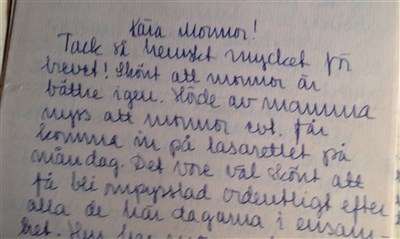 Kära Mormor!
Tack så hemskt mycket för
brevet! Skönt att mormor är
bättre igen. Hörde av mamma
nyss att mormor evt. får
komma in på lasarettet på
måndag. Det vore väl skönt att
få bli ompysslad ordentligt efter
alla de här dagarna i ensam-
het.